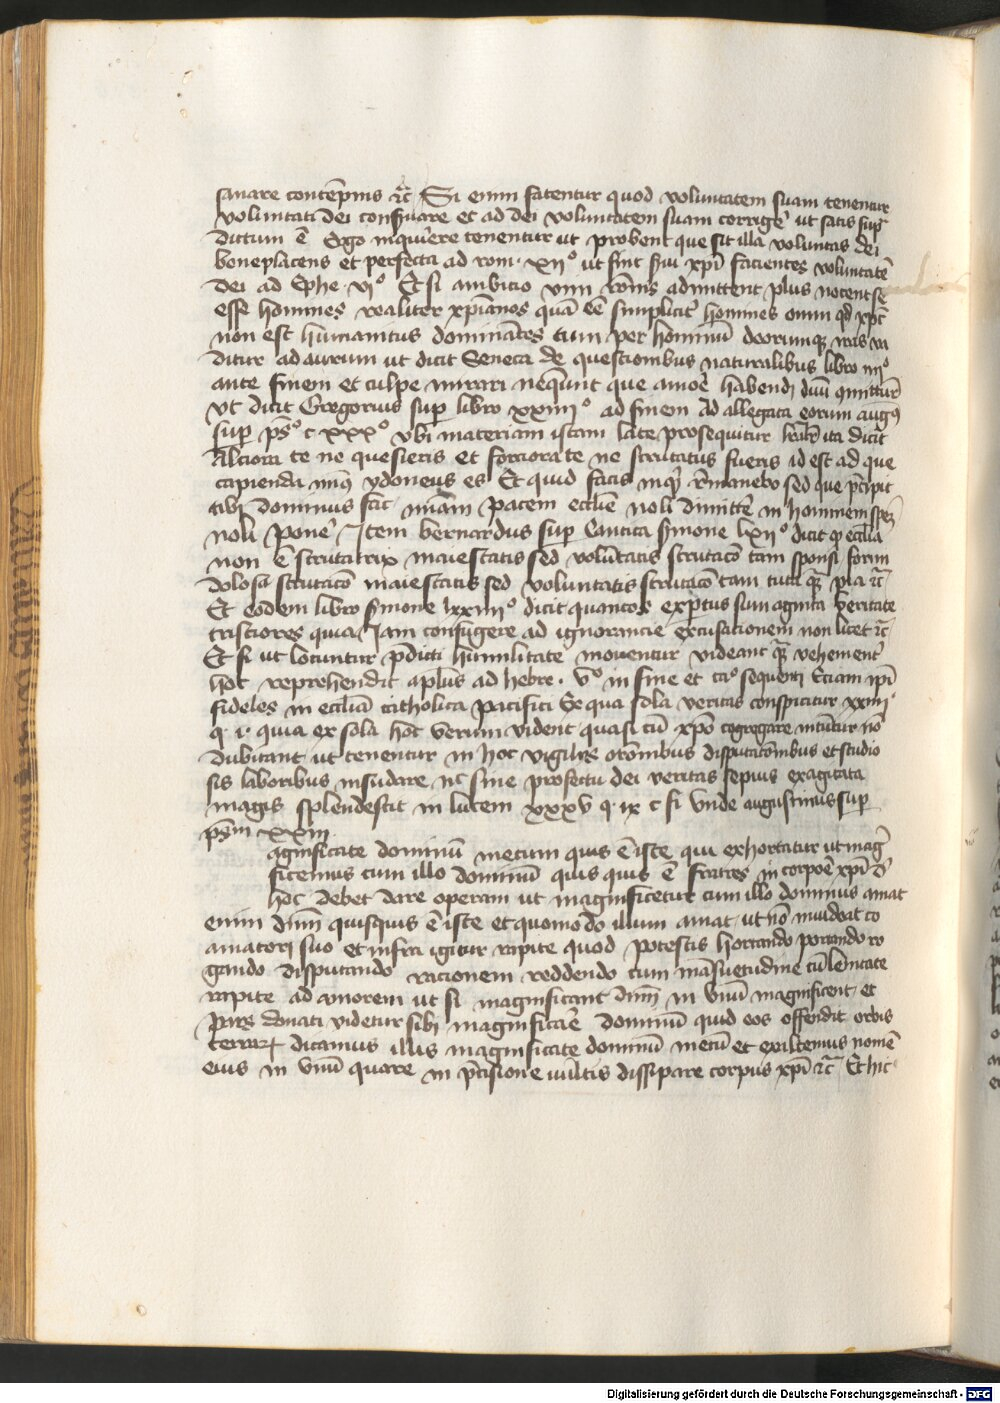 sanare contēpnis ⁊c̄ Si enim fatentur quod voluntatem suam tenentur
voluntati dei conſṽare et ad dei voluntatem suam corrigē ut satis sup̄
dictum ē Ergo inquirere tenentur ut probent que sit illa voluntas dei
beneplacens et perfecta ad rom · xiiº ut sint ſṽi xp̄i facientes voluntatē
dei ad Ephe · viº Et si ambicio admittent plus nocent se
esse homines realiter xp̄ianos quā eē simplicit̄ homines
non est humanitus tum per hominū deorumqꝫ
ditur ad aurum ut dicit Seneca de questionibus naturalibus libro iiiiº
ante finem et culpe mirari neqūnt que amoē habendi
vt dicit Gregorius sup̄ libro xxiiiiº ad finem Ad allegata eorum augꝰ
sup̄ pſ̄º c xxxº vbi materiam istam late prosequitur ita dicit
Alciora te ne quesieris et forciora te ne scrutatus fueris id est ad que
capienda minꝰ ydoneus es Et quid facis inq̄ r̄manebo sed que p̄cipit
tibi dominus pacem ecclīe noli dimittē in hominem spē
noli ponē Item bernardus sup̄ Cantica ſ̄mone lxiiº dicit ꝙ eccl̄ia
non ē scrutatrix maiestatis sed volūtatis scrutacō tam
dolosa scrutacō maiestatis sed voluntatis scrutacō tam tuta quā pia ⁊c̄
Et eodem libro ſ̄mone lxxiiiiº dicit quanto exp̄tus sum agnita veritate
tristiores quia Iam confugere ad ignorancie excusacionem non licet ⁊c̄
Et si ut locuntur p̄dicti humilitate mouentur videant quā vehement̄
hoc reprehendit apl̄us ad hebre · vº in fine et sequenti Eciam ip̄i
fideles in eccl̄ia catholica pacifici Ex qua sola veritas conspicitur xxiiii
q · i · quia ex sola hoc verum vident quasi cū xp̄o cōgregare nō
dubitant ut tenentur in hoc vigilijs orōnibus disputacōnibus et studio
sis laboribus insudare nō sine profectu dei veritas sepius exagitata
magis splendescit in lucem xxxv q · ix c si Vnde augustinus sup̄
pſ̄m xxxiii
agnificate dominū mecum quis ē iste qui exhortatur ut maḡ
ficemus cum illo dominū quis quis ē fratres in corpoē xp̄i ē
hoc debet dare operam ut magnificetur cum illo dominus amat
enim dn̄m quisquis ē iste et quomodo illum amat ut nō inuideat co
amatori suo et infra igitur rapite quod potestis hortando portando ro
gando disputando racionem reddendo cum māsuetudine cū lenitate
rapite ad amorem ut si magnificant dn̄m in vnū magnificent et
pars donati videtur sibi magnificāē dominū quid eos offendit orbis
terraꝝ dicamus illis magnificate dominū mecū et exaltemus nomē
eius in vnū quare in p̄cisione vultis dissipare corpus xp̄i ⁊c̄ Et hic
Digitalisierung gefördert durch die Deutsche Forschungsgemeinschaft - DFG